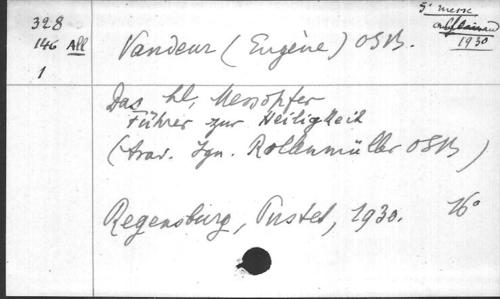 328
146 All
1
Vandeur (Eugène) OSB.
Sᵉ messe
1930
Das hl. Messopfer
Führer zur Heiligkeit
(trad. Ign. Rollenmüller OSB)
Regensburg, Pustet, 1930. 16°